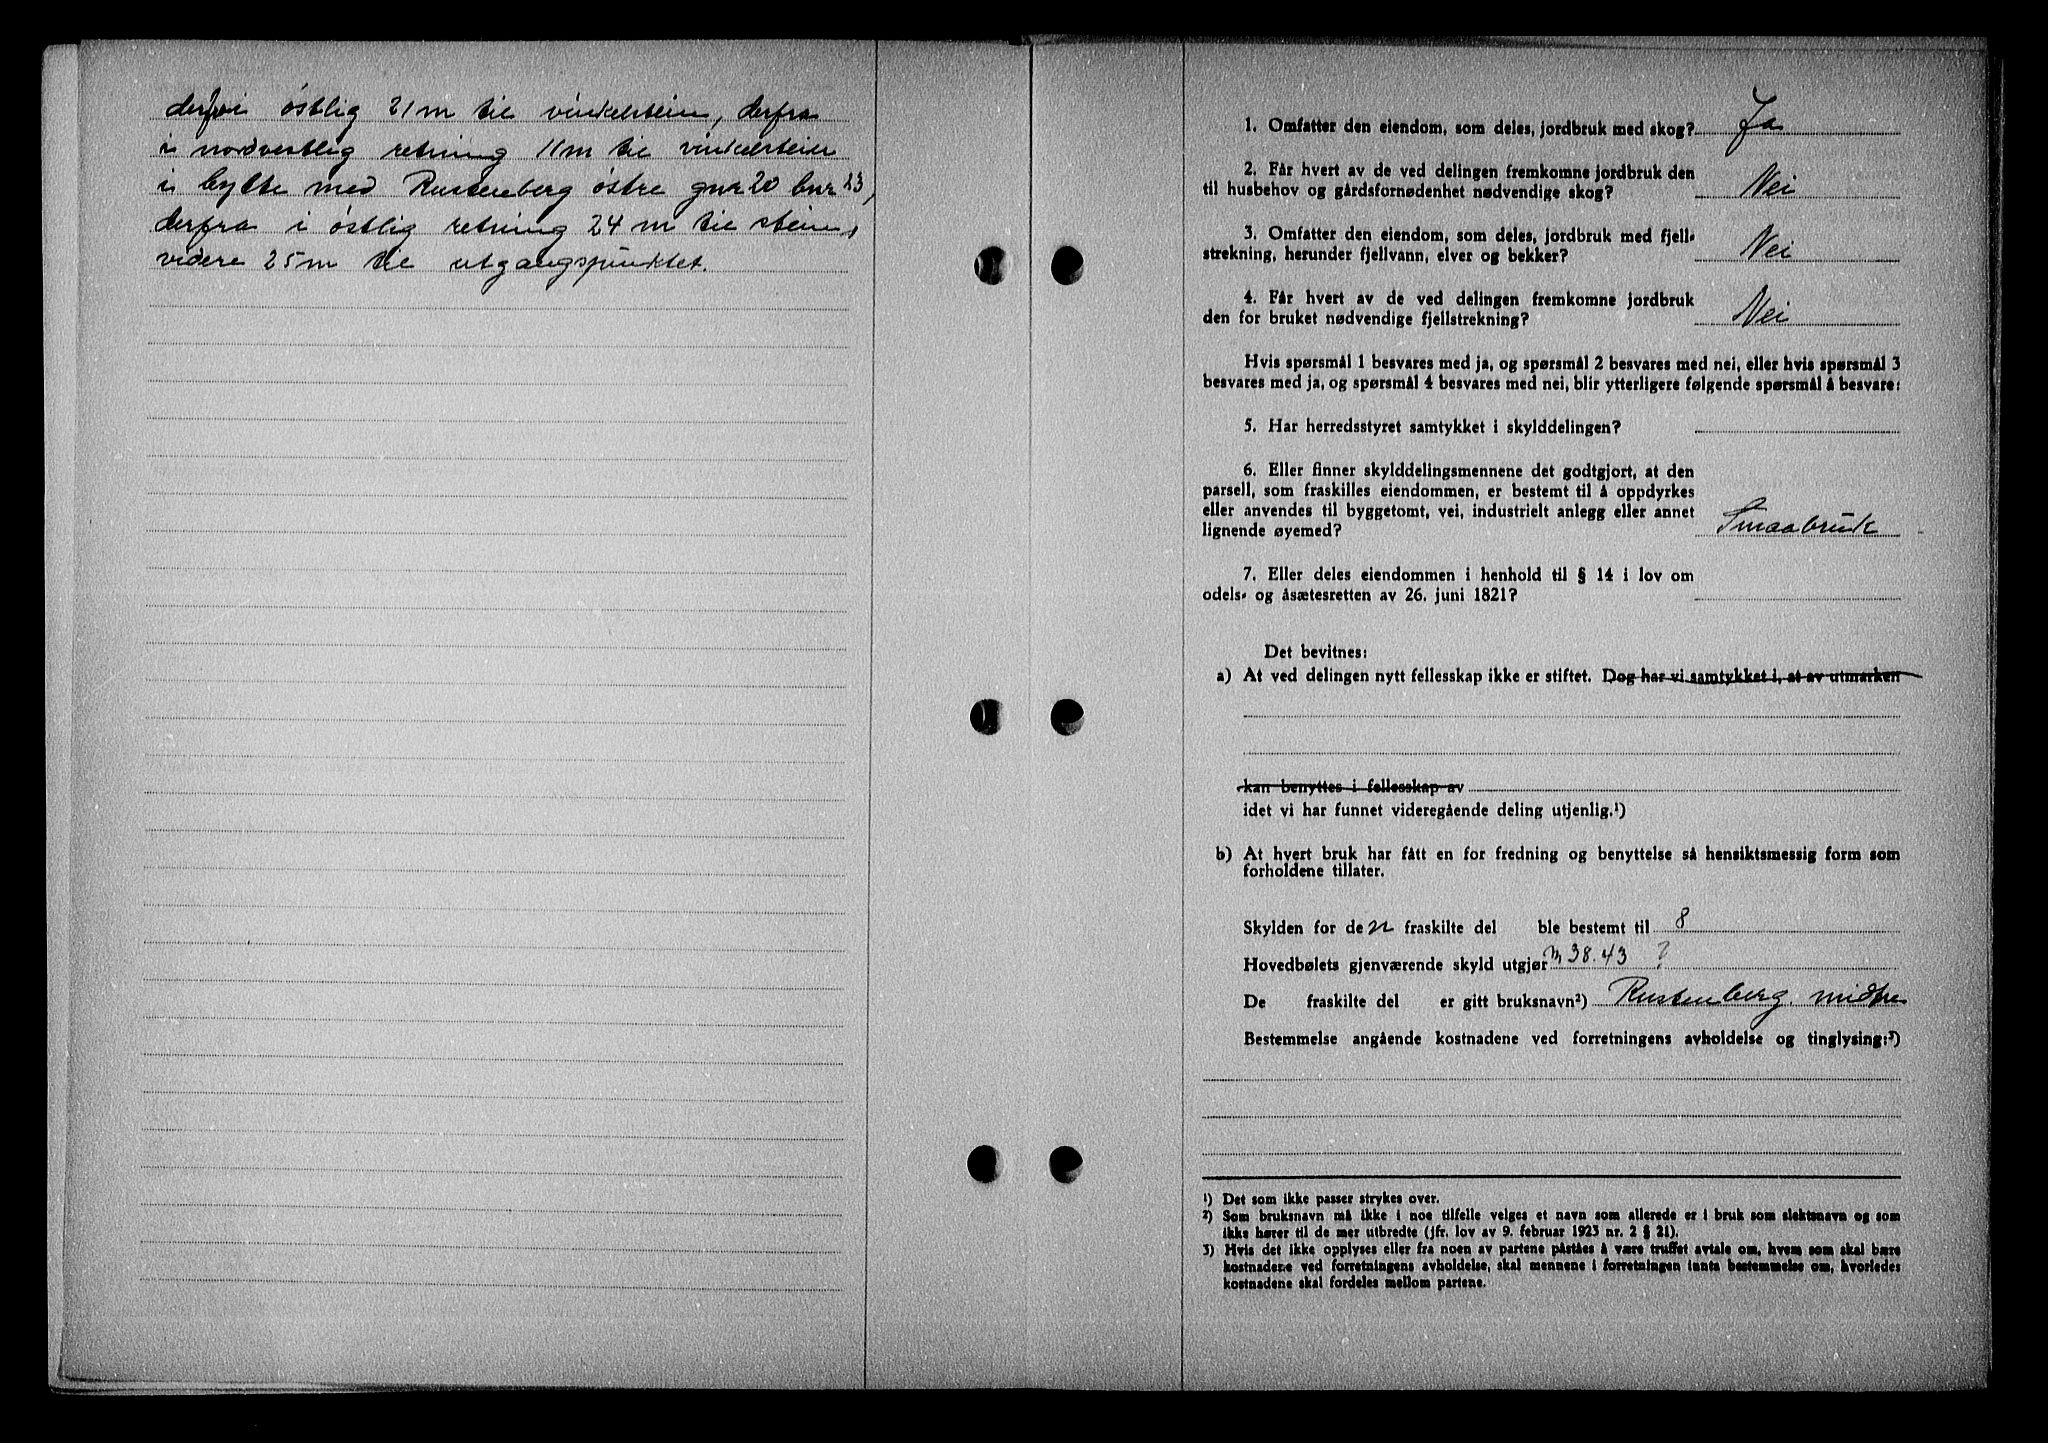 derfra i østlig 21 m til vinkelstein, derfra
i nordvestlig retning 11 m til vinkelstein
i bytte med Rustenberg østre gnr 20 bnr 23,
derfra i østlig retning 24 m til stein,
videre 25 m til utgangspunktet.
1. Omfatter den eiendom, som deles, jordbruk med skog? Ja
2. Får hvert av de ved delingen fremkomne jordbruk den
til husbehov og gårdsfornødenhet nødvendige skog? Nei
3. Omfatter den eiendom, som deles, jordbruk med fjell-
strekning, herunder fjellvann, elver og bekker? Nei
4. Får hvert av de ved delingen fremkomne jordbruk
den for bruket nødvendige fjellstrekning? Nei
Hvis spørsmål 1 besvares med ja, og spørsmål 2 besvares med nei, eller hvis spørsmål 3
besvares med ja, og spørsmål 4 besvares med nei, blir ytterligere følgende spørsmål å besvare:
5. Har herredsstyret samtykket i skylddelingen?
6. Eller finner skylddelingsmennene det godtgjort, at den
parsell, som fraskilles eiendommen, er bestemt til å oppdyrkes
eller anvendes til byggetomt, vei, industrielt anlegg eller annet
lignende øyemed? Smaabruk
7. Eller deles eiendommen i henhold til § 14 i lov om
odels- og åsætesretten av 26. juni 1821?
Det bevitnes:
a) At ved delingen nytt fellesskap ikke er stiftet. Dog har vi samtykket i, at av utmarken
kan benyttes i fellesskap av
idet vi har funnet videregående deling utjenlig.¹)
b) At hvert bruk har fått en for fredning og benyttelse så hensiktsmessig form som
forholdene tillater.
Skylden for den fraskilte del ble bestemt til 8
Hovedbølets gjenværende skyld utgjør m 38.43 ?
De fraskilte del er gitt bruksnavn²) Rustenberg midtre
Bestemmelse angående kostnadene ved forretningens avholdelse og tinglysing:³)
¹) Det som ikke passer strykes over.
²) Som bruksnavn må ikke i noe tilfelle velges et navn som allerede er i bruk som slektsnavn og som
ikke hører til de mer utbredte (jfr. lov av 9. februar 1923 nr. 2 § 21).
3) Hvis det ikke opplyses eller fra noen av partene påståes å være truffet avtale om, hvem som skal bære
kostnadene ved forretningens avholdelse, skal mennene i forretningen innta bestemmelse om, hvorledes
kostnadene skal fordeles mellom partene.